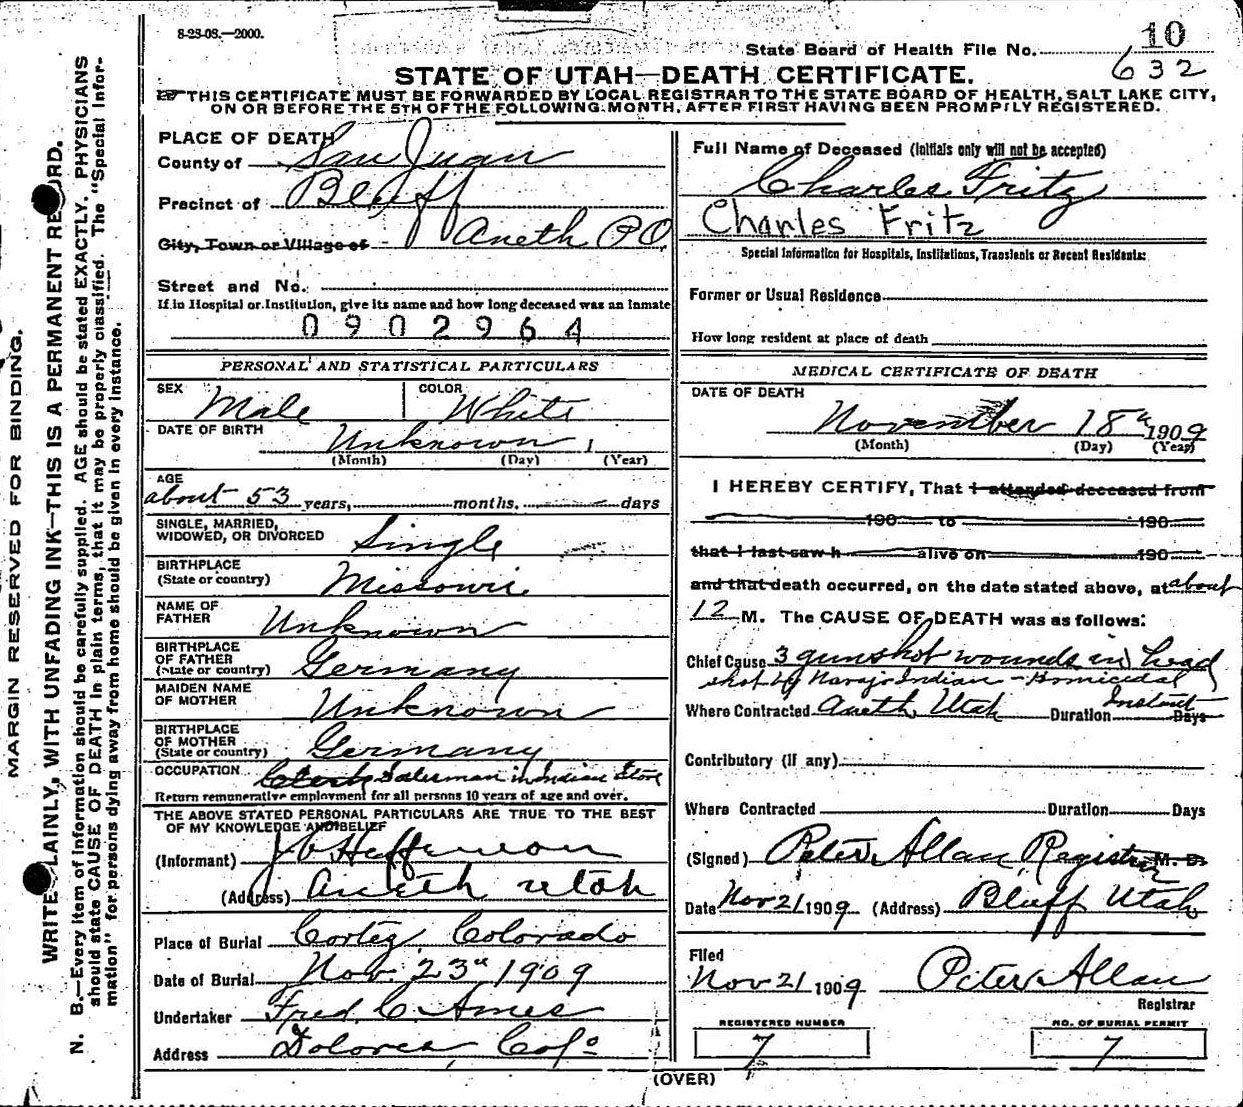 8-23-08.—2000.
State Board of Health File No. 10
632
STATE OF UTAH—DEATH CERTIFICATE.
THIS CERTIFICATE MUST BE FORWARDED BY LOCAL REGISTRAR TO THE STATE BOARD OF HEALTH, SALT LAKE CITY,
ON OR BEFORE THE 5TH OF THE FOLLOWING MONTH, AFTER FIRST HAVING BEEN PROMPTLY REGISTERED.
MARGIN RESERVED FOR BINDING.
WRITE PLAINLY, WITH UNFADING INK—THIS IS A PERMANENT RECORD.
N. B.—Every item of information should be carefully supplied. AGE should be stated EXACTLY. PHYSICIANS
should state CAUSE OF DEATH in plain terms, that it may be properly classified. The "Special Infor-
mation" for persons dying away from home should be given in every instance.
PLACE OF DEATH
County of San Juan
Precinct of Bluff
City, Town or Village of - Aneth P O
Street and No.
If in Hospital or Institution, give its name and how long deceased was an inmate
0902964
PERSONAL AND STATISTICAL PARTICULARS
SEX Male COLOR White
DATE OF BIRTH Unknown
(Month) (Day) (Year)
AGE
about 53 years, months. days
SINGLE, MARRIED,
WIDOWED, OR DIVORCED Single
BIRTHPLACE
(State or country) Missouri
NAME OF
FATHER Unknown
BIRTHPLACE
OF FATHER
(State or country) Germany
MAIDEN NAME
OF MOTHER Unknown
BIRTHPLACE
OF MOTHER
(State or country) Germany
OCCUPATION Clerk Salesman in Indian Store
Return remunerative employment for all persons 10 years of age and over.
THE ABOVE STATED PERSONAL PARTICULARS ARE TRUE TO THE BEST
OF MY KNOWLEDGE AND BELIEF
(Informant) J C Heffernon
(Address) Aneth Utah
Place of Burial Cortez, Colorado
Date of Burial Nov. 23rd 1909
Undertaker Fred. C. Ames
Address Dolores, Colo
Full Name of Deceased (Initials only will not be accepted)
Charles Fritz
Charles Fritz
Special Information for Hospitals, Institutions, Transients or Recent Residents:
Former or Usual Residence
How long resident at place of death
MEDICAL CERTIFICATE OF DEATH
DATE OF DEATH
November 18th 1909
(Month) (Day) (Year)
I HEREBY CERTIFY, That I attended deceased from
190 to 190
that I last saw h alive on 190
and that death occurred, on the date stated above, at about
12 M. The CAUSE OF DEATH was as follows:
Chief Cause 3 gunshot wounds in head
shot by Navajo Indian - Homicidal
Where Contracted Aneth, Utah Duration Instant Days
Contributory (if any)
Where Contracted Duration Days
(Signed) Peter Allan, Registrar M. D.
Date Nov 21 1909 (Address) Bluff Utah
Filed
Nov 21 1909 Peter Allan
Registrar
REGISTERED NUMBER
7
NO. OF BURIAL PERMIT
7
(OVER)